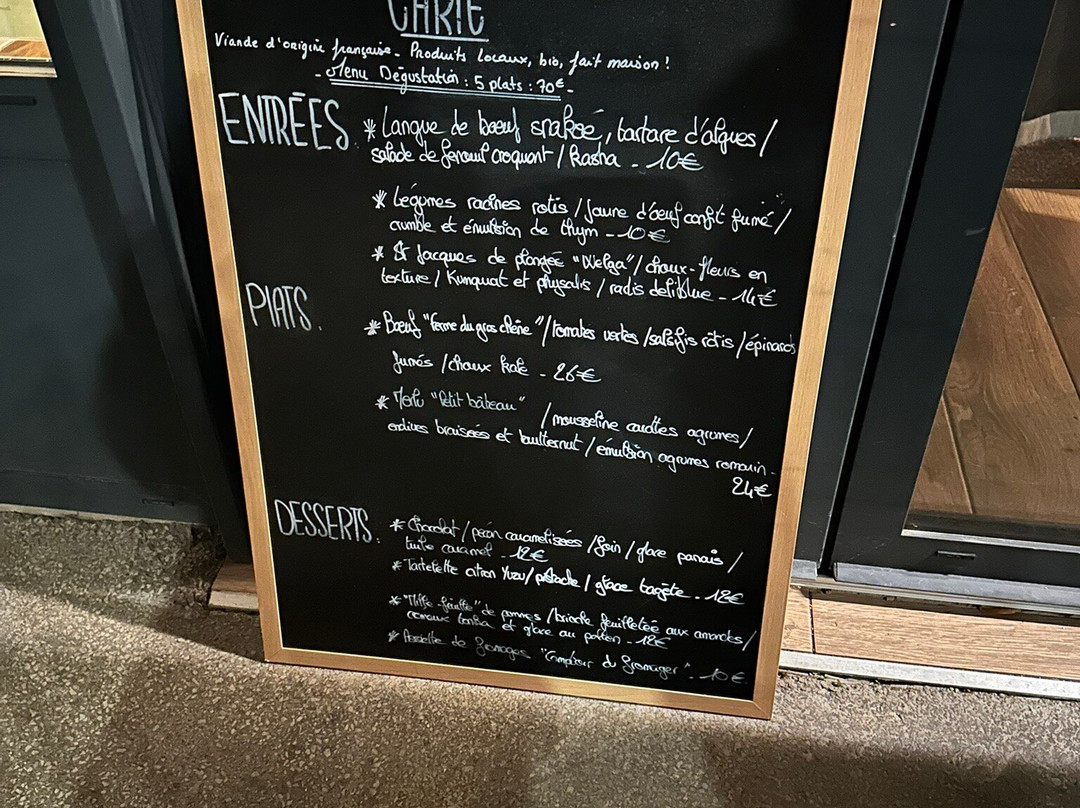 CARTE
Viande d'origine française - Produits locaux, bio, fait maison !
- Menu Dégustation : 5 plats : 70€ -
ENTRÉES * Langue de boeuf snakée, tartare d'algues /
salade de fenouil croquant / Kasha - 10€
* Légumes racines rotis / Jaune d'oeuf confit fumé /
crumble et émulsion de thym - 10€
* St Jacques de plongée / choux-fleurs en
texture / Kumquat et physalis / radis - 14€
PLATS.
* Boeuf "ferme du gros chêne" / tomates vertes / salsifis rôtis / épinards
fumés / choux kale - 26€
* "Petit bâteau" / mousseline agrumes /
endives braisées et butternut / émulsion agrumes romarin -
24€
DESSERTS.
* Chocolat / caramélisées / foin / glace panais /
tuile caramel - 12€
* Tartelette citron Yuzu / pistache / glace - 12€
* de pommes / brioche feuilletée aux amandes /
et glace au pollen - 12€
* Assiette de fromages "Comptoir du fromager" - 10€